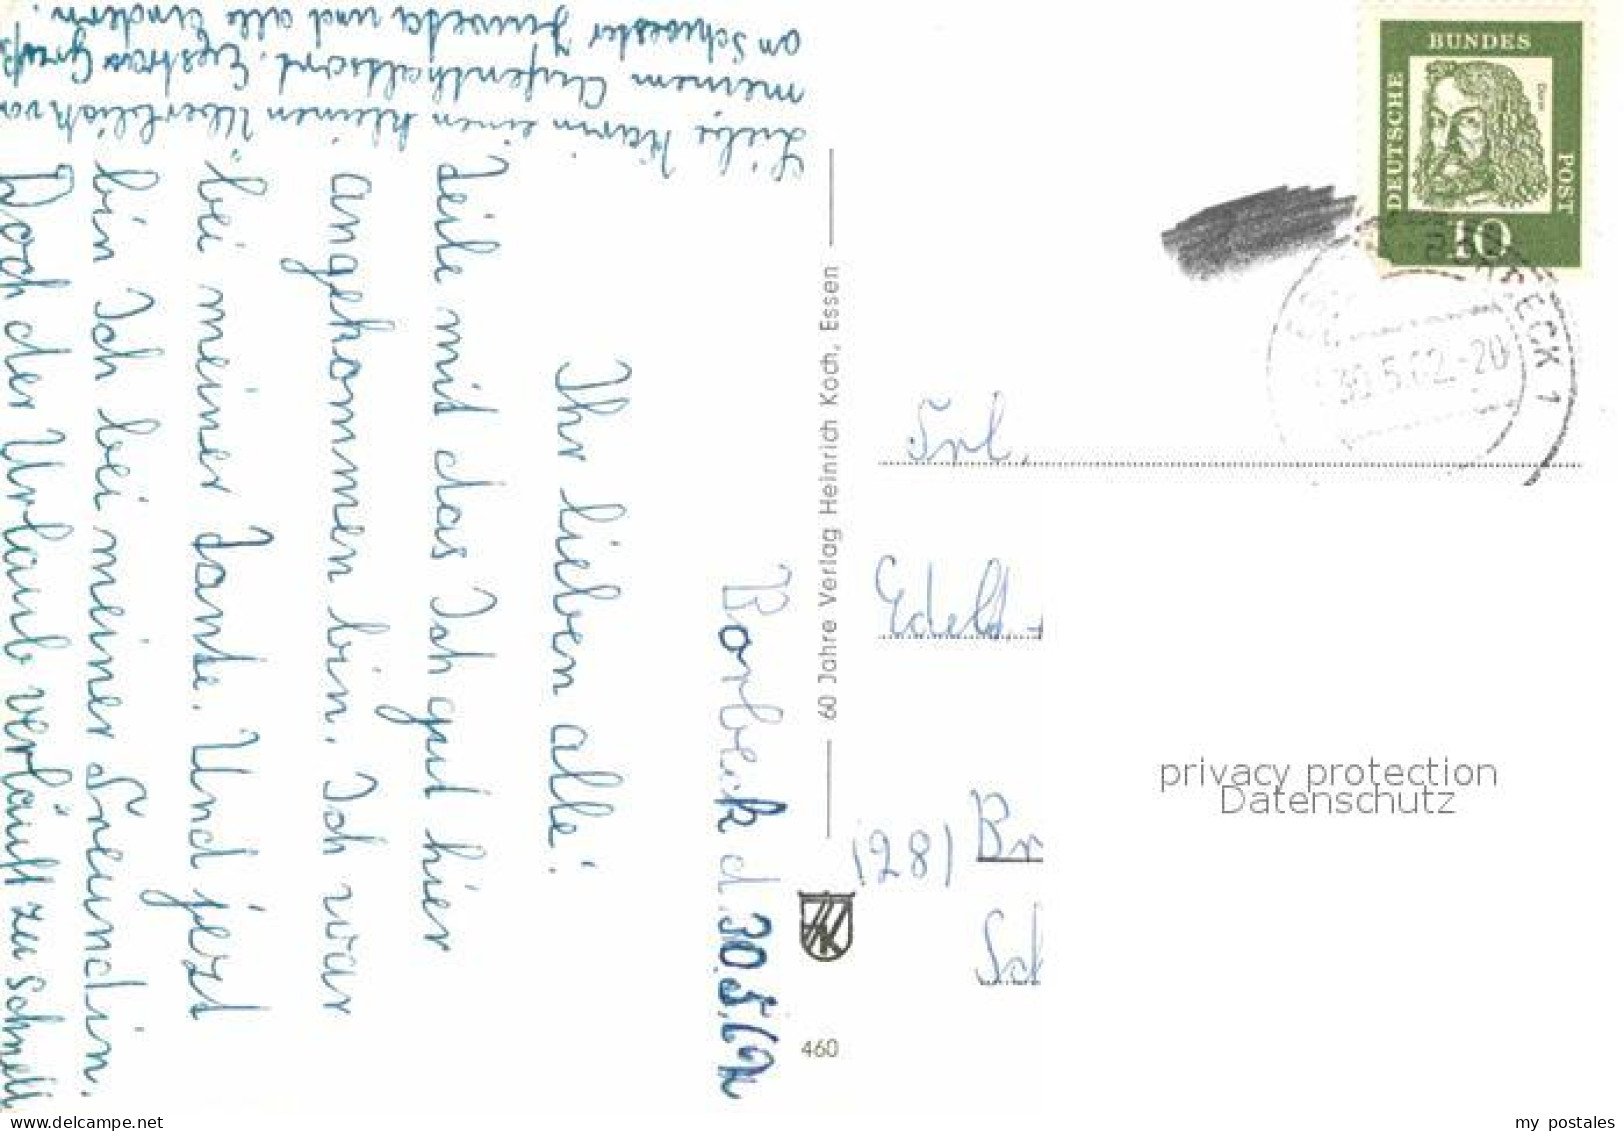 Borbeck d. 30.5.62
Ihr lieben alle!
Teile mit das Ich gut hier
angekommen bin. Ich war
bei meiner Tante. Und jezt
bin Ich bei meiner Freundin.
Doch der Urlaub verläuft zu schnell
Liebe Karin einen kleinen Überblick von
meinem Aufenthaltsort. Extra Gruß
an Schwester und alle andern.
60 Jahre Verlag Heinrich Koch, Essen
HK
460
DEUTSCHE
BUNDES
POST
Dürer
10
30.5.62.-20
ECK 1
Frl.
Edelt
(28) Br
Sch
privacy protection
Datenschutz
www.delcampe.net
my_postales